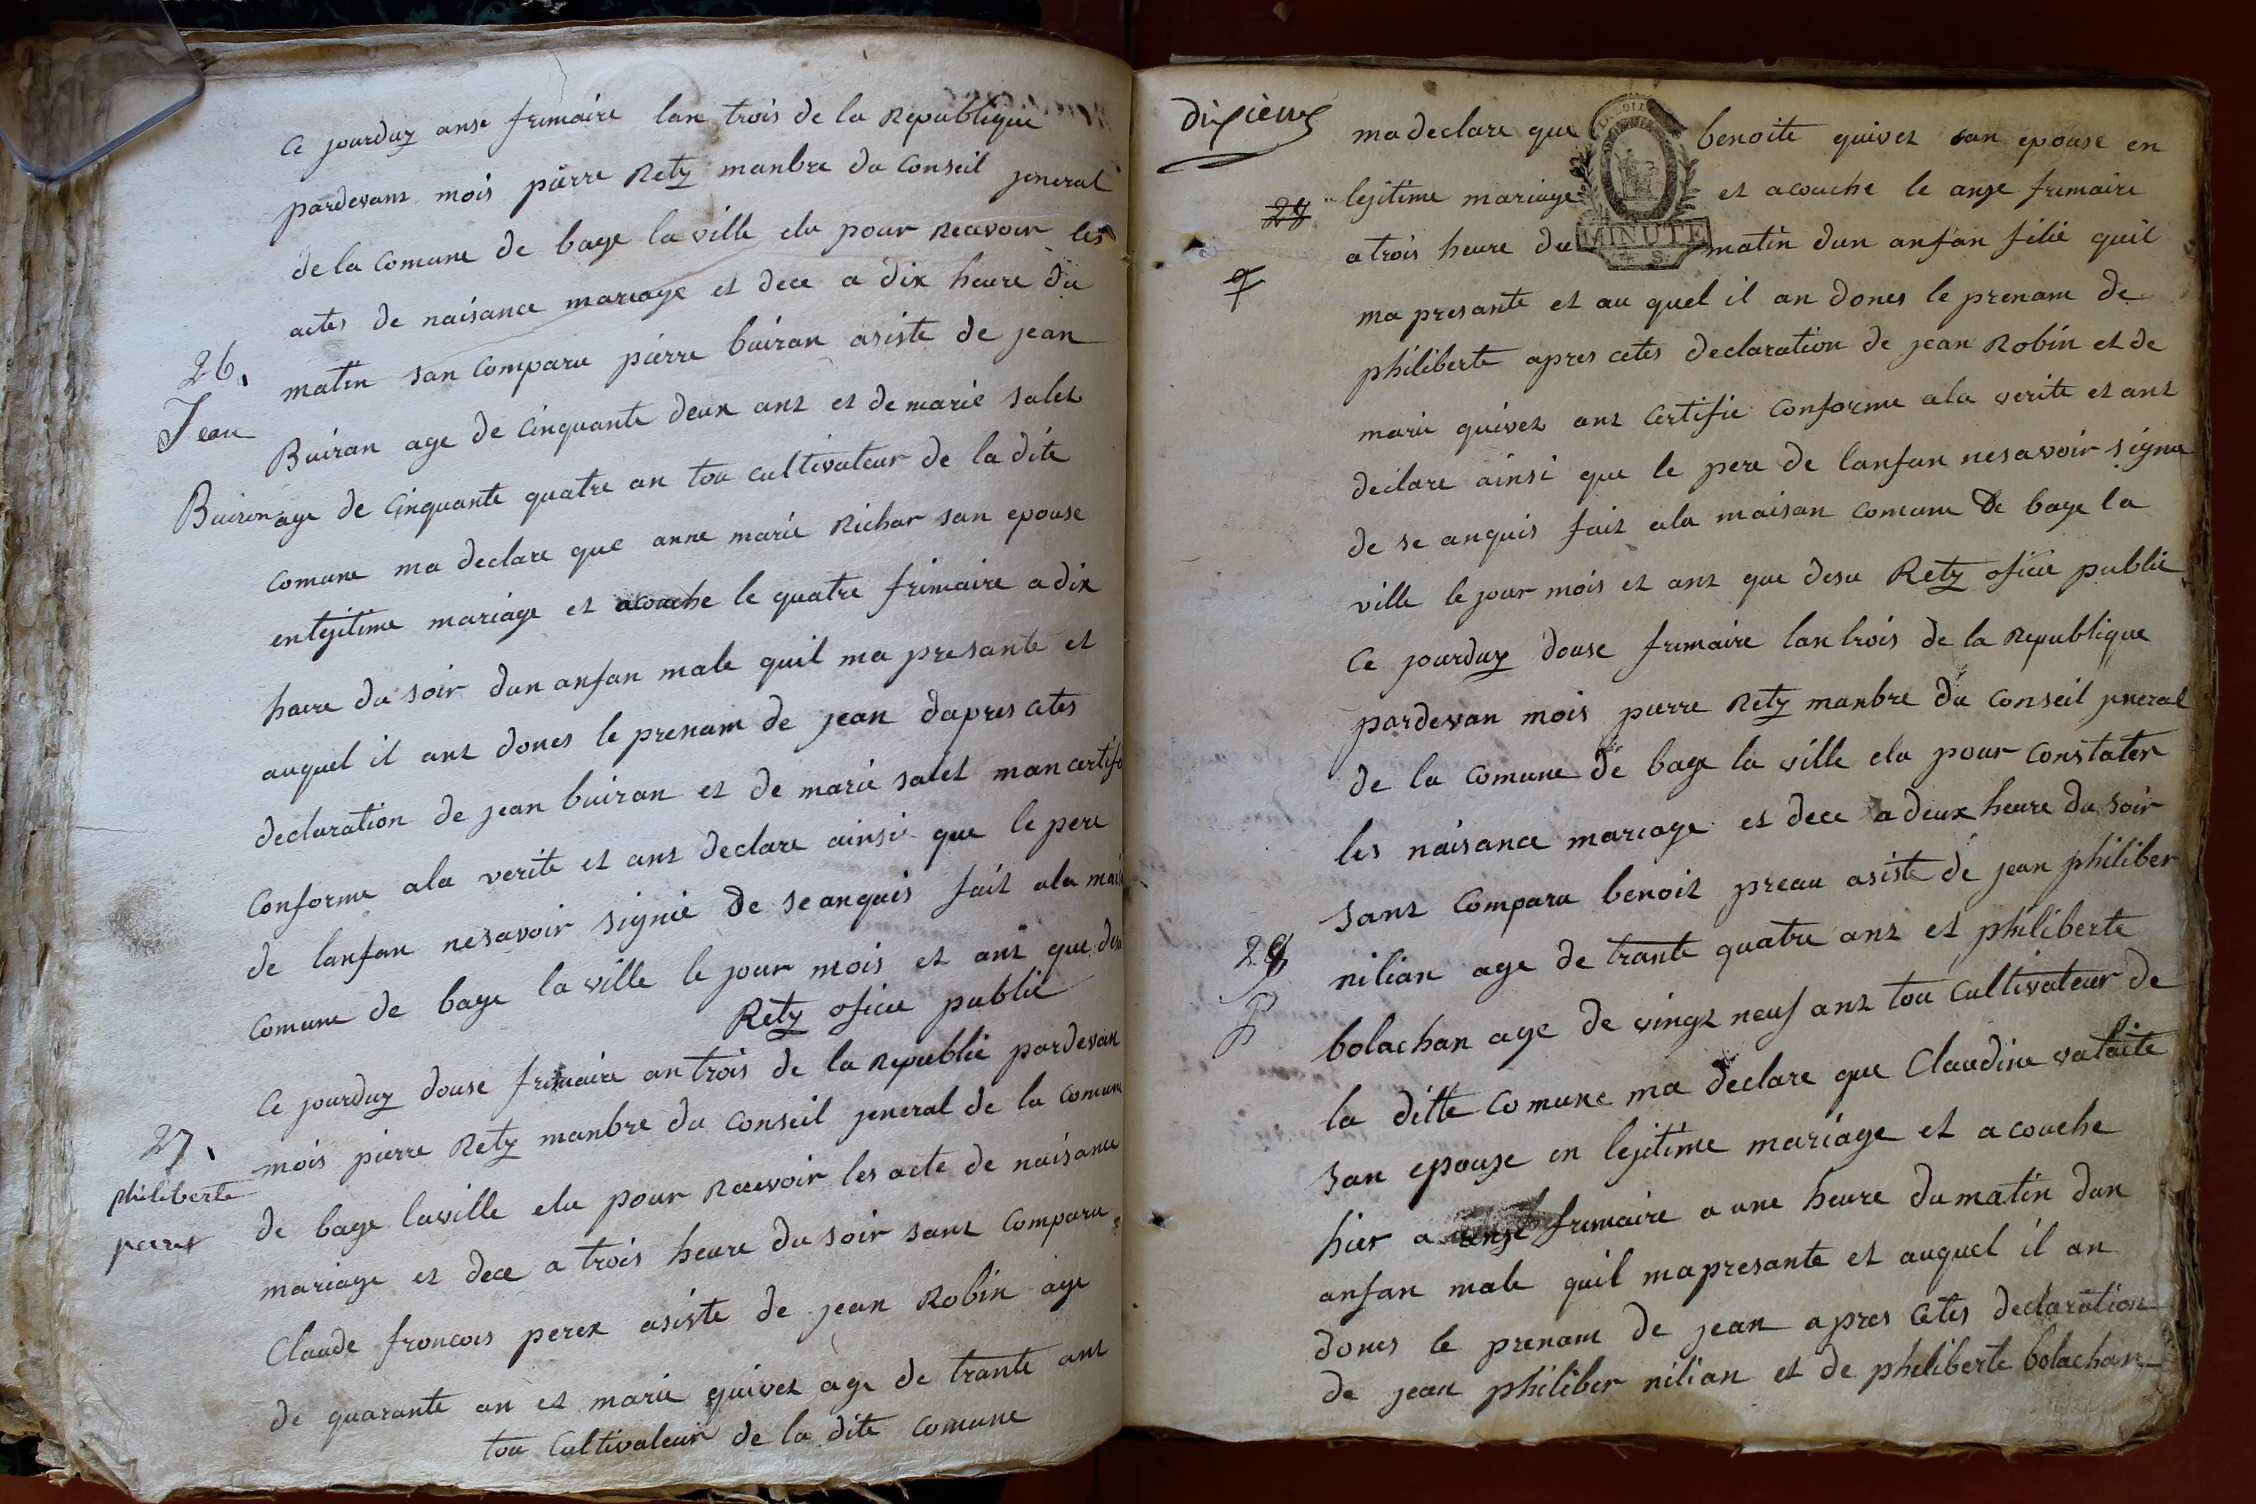 Ce jourduy anse frimaire lan trois de la Republique
pardevant mois pierre Rety manbre du Conseil jeneral
de la Comune de bage la ville elu pour Recevoir les
actes de naisance mariage et dece a dix heure du
26.
matin san Comparu pierre buiran asiste de jean
Jean
Buiran age de Cinquante deux ant et de marie salet
Buiron
age de Cinquante quatre an tou cultivateur de la dite
Comune ma declare que anne marie Richar san epouse
en lejitime mariage et acouche le quatre frimaire a dix
heure du soir dun anfan male quil ma presante et
auquel il ant dones le prenam de jean dapres cetes
declaration de jean buiran et de marie salet man certifi
Conforme ala verite et ant declare ainsi que le pere
de lanfan nesavoir signie de se anquis fait ala mais
Comune de bage la ville le jour mois et ant que desu
Rety oficie public
Ce jourduy douse frimaire an trois de la Republic pardevan
27.
mois pierre Rety manbre du Conseil jeneral de la Comune
philiberte
de bage laville elu pour Recevoir les acte de naisance
perex
mariage et dece a trois heure du soir sant Comparu
Claude francois perex asiste de jean Robin age
de quarante an et marie quivet age de trante ant
tou Cultivateur de la dite Comune
dixieme
ma declare que benoite quivet san epouse en
28
lejitime mariage et acouche le anse frimaire
MINUTE
4 S.
a trois heure du matin dun anfan filie quil
ma presante et au quel il an dones le prenam de
philiberte apres cetes declaration de jean Robin et de
marie quivet ant Certifie Conforme ala verite et ant
declare ainsi que le pere de lanfan nesavoir signe
de se anquis fait ala maisan Comune de bage la
ville le jour mois et ant que desu Rety oficie public
Ce jourduy douse frimaire lan trois de la Republique
pardevan mois pierre Rety manbre du Conseil jeneral
de la Comune de bage la ville elu pour Constater
les naisance mariage et dece a deux heure du soir
sant Comparu benoit preau asiste de jean philiber
28
nilian age de trante quatre ant et philiberte
bolachan age de vingt neuf ant tou Cultivateur de
la ditte Comune ma declare que Claudine valaite
san epouse en lejitime mariage et acouche
hier a anse frimaire a une heure du matin dun
anfan male quil ma presante et auquel il an
dones le prenam de jean apres Cetes declaration
de jean philiber nilian et de pheliberte bolachan